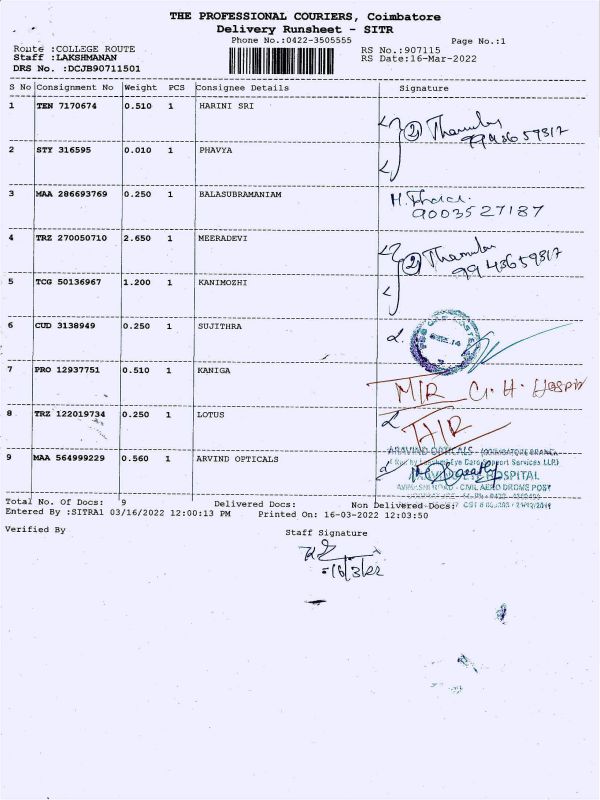 THE PROFESSIONAL COURIERS, Coimbatore
Delivery Runsheet - SITR
Phone No.:0422-3505555
Page No.:1
Route :COLLEGE ROUTE
RS No.:907115
Staff :LAKSHMANAN
RS Date:16-Mar-2022
DRS No. :DCJB90711501
S No Consignment No Weight PCS Consignee Details Signature
1 TEN 7170674 0.510 1 HARINI SRI
2 STY 316595 0.010 1 PHAVYA
3 MAA 286693769 0.250 1 BALASUBRAMANIAM
9003527187
4 TRZ 270050710 2.650 1 MEERADEVI
5 TCG 50136967 1.200 1 KANIMOZHI
6 CUD 3138949 0.250 1 SUJITHRA
7 PRO 12937751 0.510 1 KANIGA
M/R G. H.
8 TRZ 122019734 0.250 1 LOTUS
ARAVIND OPTICALS - (COIMBATORE BRANCH
9 MAA 564999229 0.560 1 ARVIND OPTICALS
HOSPITAL
CIVIL AERO DROME POST
Total No. Of Docs: 9 Delivered Docs: Non Delivered Docs:
Entered By :SITRA1 03/16/2022 12:00:13 PM Printed On: 16-03-2022 12:03:50
Verified By
Staff Signature
16/3/22